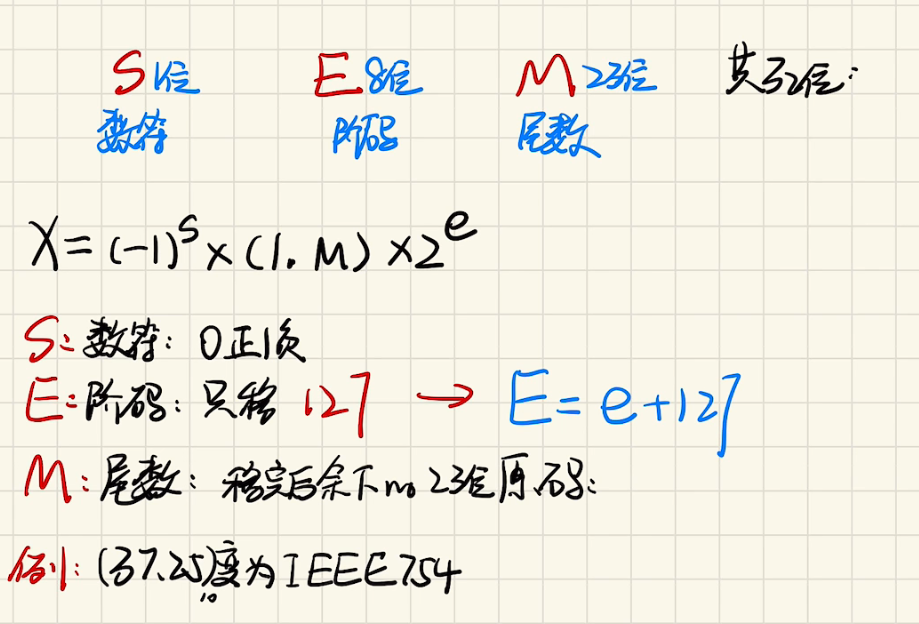 S 1位 E 8位 M 23位 共32位:
数符 阶码 尾数
X=(-1)^S×(1.M)×2^e
S:数符:0正1负
E:阶码:只移127→E=e+127
M:尾数:移完后余下的23位原码:
例1:(37.25)₁₀变为IEEE754